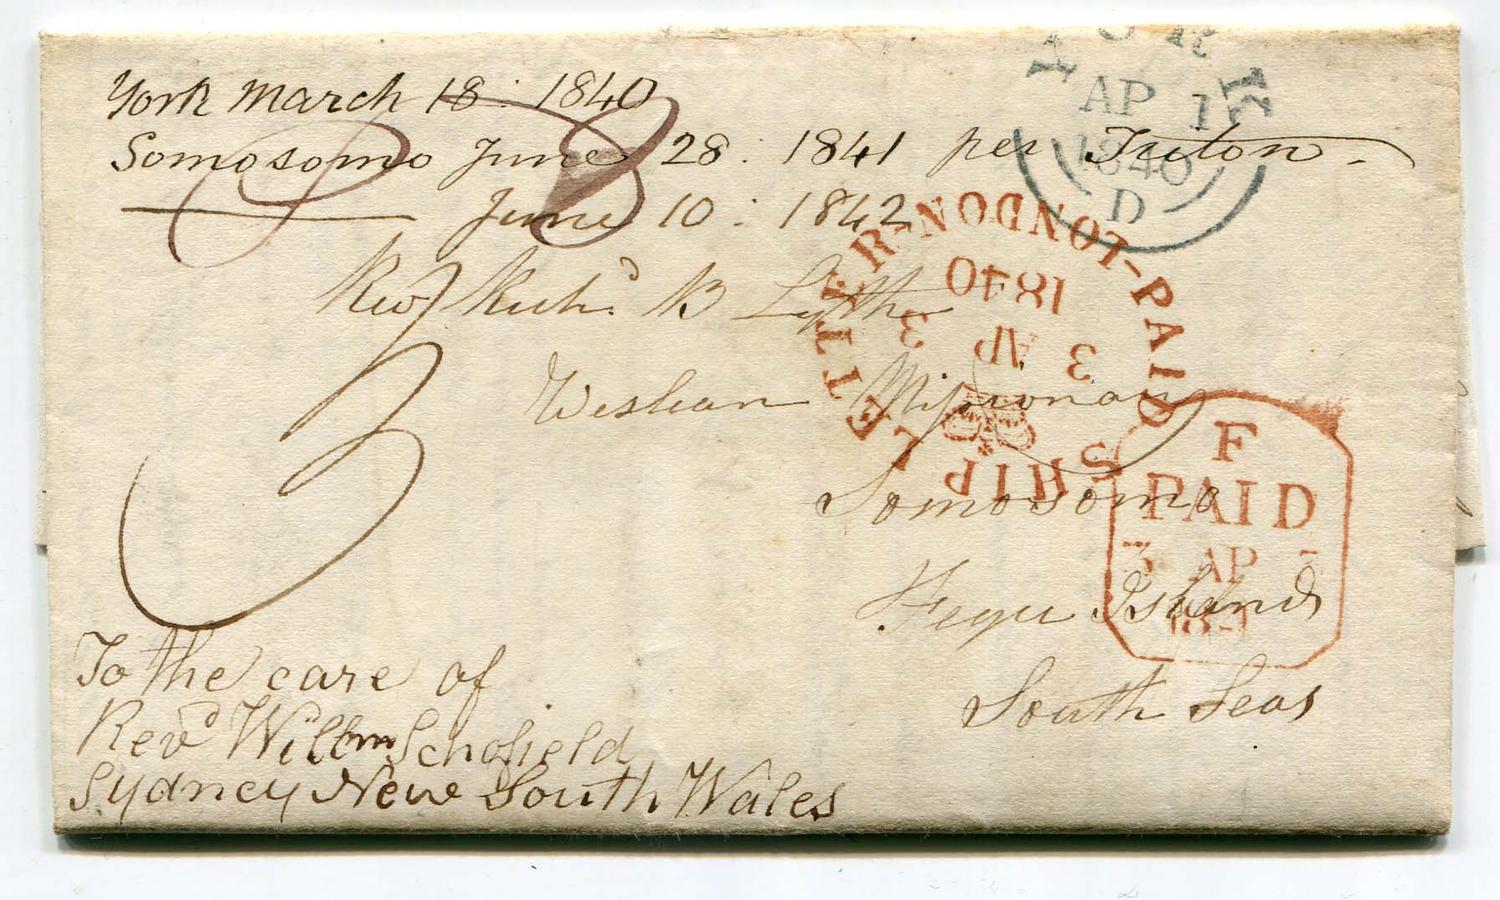 York March 18: 1840
Somosomo June 28: 1841 per Triton.
June 10: 1842
Revd Richd B Lyth
Weslean Missionary
Somosomo
Feegee Islands
South Seas
To the care of
Revd Willm Schofield
Sydney New South Wales
YORK
AP 1
1840
D
PAID-SHIP LETTER-LONDON
3 AP 3
1840
F
PAID
3 AP 3